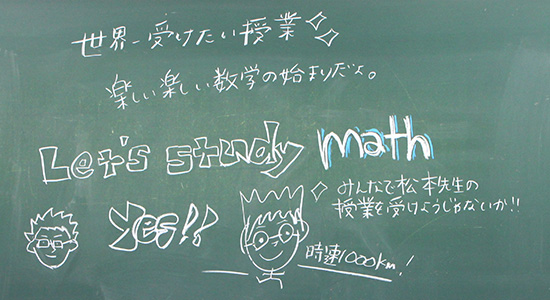 世界一受けたい授業
楽しい楽しい数学の始まりだよ。
Let's study math
みんなで松本先生の
授業を受けようじゃないか!!
Yes!!
時速1000km!